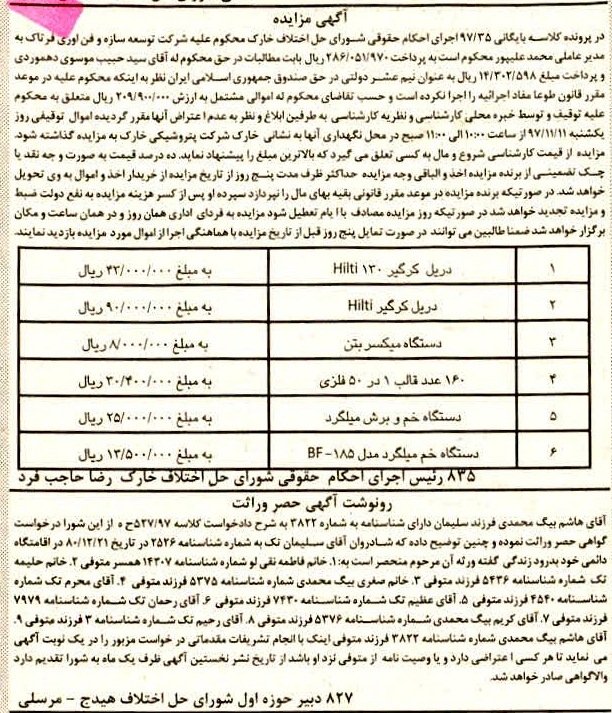 آگهی مزایده
در پرونده کلاسه بایگانی ۹۷/۳۵ اجرای احکام حقوقی شورای حل اختلاف خارک محکوم علیه شرکت توسعه سازه و فن آوری فرتاک به
مدیر عاملی محمد علیپور محکوم است به پرداخت ۲۸۶/۰۵۱/۹۷۰ ریال بابت مطالبات در حق محکوم له آقای سید حبیب موسوی دهموردی
و پرداخت مبلغ ۱۴/۳۰۲/۵۹۸ ریال به عنوان نیم عشر دولتی در حق صندوق جمهوری اسلامی ایران نظر به اینکه محکوم علیه در موعد
مقرر قانون طوعا مفاد اجرائیه را اجرا نکرده است و حسب تقاضای محکوم له اموالی مشتمل به ارزش ۲۰۹/۹۰۰/۰۰۰ ریال متعلق به محکوم
علیه توقیف و توسط خبره محلی کارشناسی و نظریه کارشناسی به طرفین ابلاغ و نظر به عدم اعتراض آنها مقرر گردیده اموال توقیفی روز
یکشنبه ۹۷/۱۱/۱۱ از ساعت ۱۰:۰۰ الی ۱۱:۰۰ صبح در محل نگهداری آنها به نشانی خارک شرکت پتروشیمی خارک به مزایده گذاشته شود.
مزایده از قیمت کارشناسی شروع و مال به کسی تعلق می گیرد که بالاترین مبلغ را پیشنهاد نماید. ده درصد قیمت به صورت وجه نقد یا
چک تضمینی از برنده مزایده اخذ و الباقی وجه مزایده حداکثر ظرف مدت پنج روز از تاریخ مزایده از خریدار اخذ و اموال به وی تحویل
خواهد شد. در صورتیکه برنده مزایده در موعد مقرر قانونی بقیه بهای مال را نپردازد سپرده او پس از کسر هزینه مزایده به نفع دولت ضبط
و مزایده تجدید خواهد شد در صورتیکه روز مزایده مصادف با ایام تعطیل شود مزایده به فردای اداری همان روز و در همان ساعت و مکان
برگزار خواهد شد ضمنا طالبین می توانند در صورت تمایل پنج روز قبل از تاریخ مزایده با هماهنگی اجرا از اموال مورد مزایده بازدید نمایند.
۱ دریل کرگیر Hilti ۱۳۰ به مبلغ ۴۳/۰۰۰/۰۰۰ ریال
۲ دریل کرگیر Hilti به مبلغ ۹۰/۰۰۰/۰۰۰ ریال
۳ دستگاه میکسر بتن به مبلغ ۸/۰۰۰/۰۰۰ ریال
۴ ۱۶۰ عدد قالب ۱ در ۵۰ فلزی به مبلغ ۳۰/۴۰۰/۰۰۰ ریال
۵ دستگاه خم و برش میلگرد به مبلغ ۲۵/۰۰۰/۰۰۰ ریال
۶ دستگاه خم میلگرد مدل BF-۱۸۵ به مبلغ ۱۳/۵۰۰/۰۰۰ ریال
۸۳۵ رئیس اجرای احکام حقوقی شورای حل اختلاف خارک رضا حاجب فرد
رونوشت آگهی حصر وراثت
آقای هاشم بیگ محمدی فرزند سلیمان دارای شناسنامه به شماره ۳۸۲۲ به شرح دادخواست کلاسه ۵۲۷/۹۷ح ه از این شورا درخواست
گواهی حصر وراثت نموده و چنین توضیح داده که شادروان آقای سلیمان تک به شماره شناسنامه ۲۵۲۶ در تاریخ ۸۰/۱۲/۲۱ در اقامتگاه
دائمی خود بدرود زندگی گفته ورثه آن مرحوم منحصر است به: ۱. خانم فاطمه نقی لو شماره شناسنامه ۱۴۳۰۷ همسر متوفی ۲. خانم حلیمه
تک شماره شناسنامه ۵۴۳۶ فرزند متوفی ۳. خانم صغری بیگ محمدی شماره شناسنامه ۵۳۷۵ فرزند متوفی ۴. آقای محرم تک شماره
شناسنامه ۴۵۴۰ فرزند متوفی ۵. آقای عظیم تک شماره شناسنامه ۷۴۳۰ فرزند متوفی ۶. آقای رحمان تک شماره شناسنامه ۷۹۷۹
فرزند متوفی ۷. آقای کریم بیگ محمدی شماره شناسنامه ۵۳۷۶ فرزند متوفی ۸. آقای رحیم تک شماره شناسنامه ۳ فرزند متوفی ۹.
آقای هاشم بیگ محمدی شماره شناسنامه ۳۸۲۲ فرزند متوفی اینک با انجام تشریفات مقدماتی در خواست مزبور را در یک نوبت آگهی
می نماید تا هر کسی اعتراضی دارد و یا وصیت نامه از متوفی نزد او باشد از تاریخ نشر نخستین آگهی ظرف یک ماه به شورا تقدیم دارد
والاگواهی صادر خواهد شد.
۸۲۷ دبیر حوزه اول شورای حل اختلاف هیدج - مرسلی